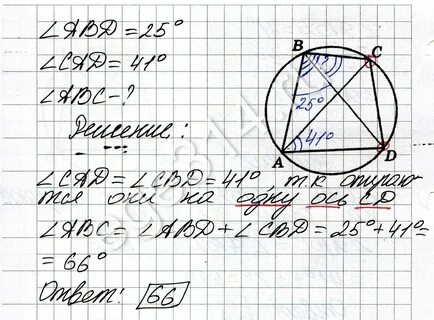 ∠ABD = 25°
∠CAD = 41°
∠ABC - ?
Решение:
∠CAD = ∠CBD = 41°, т.к опираю
тся они на одну ось CD
∠ABC = ∠ABD + ∠CBD = 25° + 41° =
= 66°
Ответ: 66
B
C
?
25°
41°
A
D